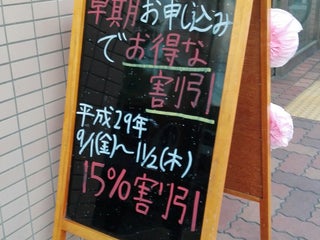 早期お申し込み
でお得な
割引
平成29年
9/1(金)〜11/2(木)
15%割引